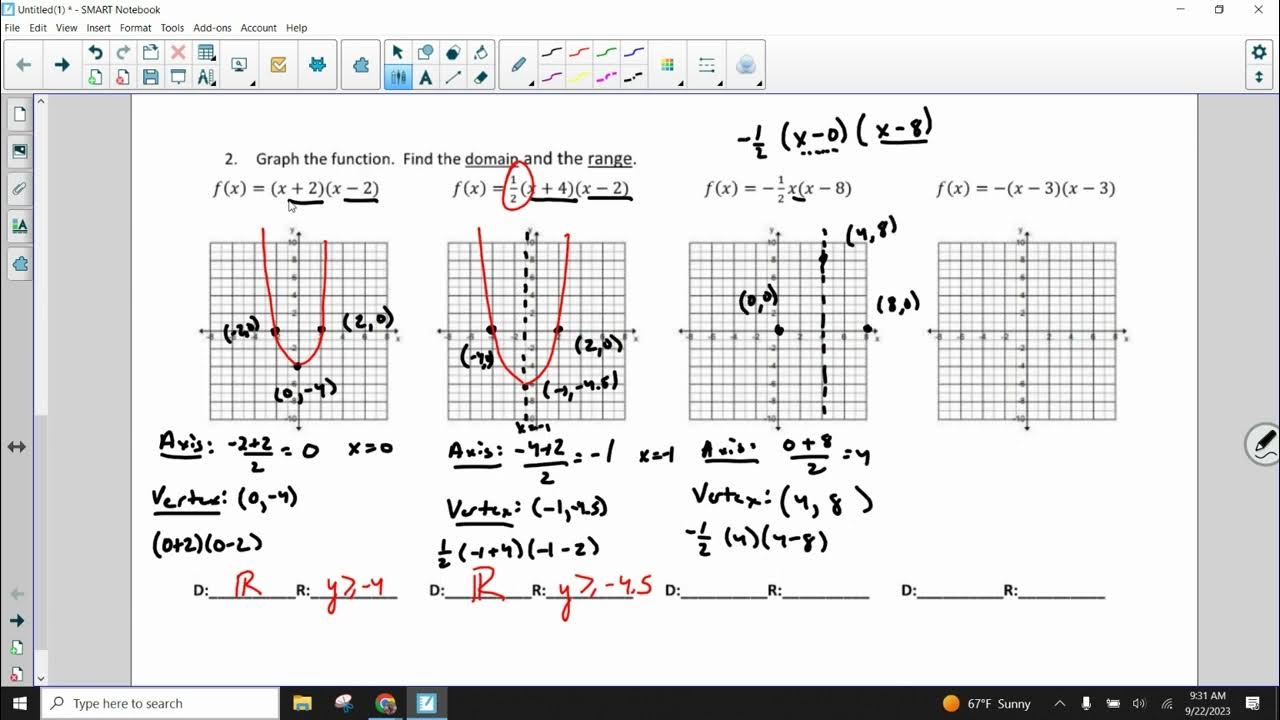 Untitled(1) * - SMART Notebook
File Edit View Insert Format Tools Add-ons Account Help
-1/2 (x-0)(x-8)
2. Graph the function. Find the domain and the range.
f(x) = (x + 2)(x − 2)
f(x) = 1/2(x + 4)(x − 2)
f(x) = −1/2x(x − 8)
f(x) = −(x − 3)(x − 3)
(-2,0)
(2,0)
(0,-4)
(2,0)
(-1,-4.5)
x=-1
(4,8)
(0,0)
(8,0)
Axis: -2+2/2 = 0 x=0
Vertex: (0,-4)
(0+2)(0-2)
Axis: -4+2/2 = -1 x=-1
Vertex: (-1,-4.5)
1/2 (-1+4)(-1-2)
Axis: 0+8/2 = 4
Vertex: (4, 8 )
-1/2 (4)(4-8)
D: ℝ R: y≥-4
D: ℝ R: y≥-4.5
D:__________R:__________
D:__________R:__________
Type here to search
67°F Sunny
9:31 AM
9/22/2023